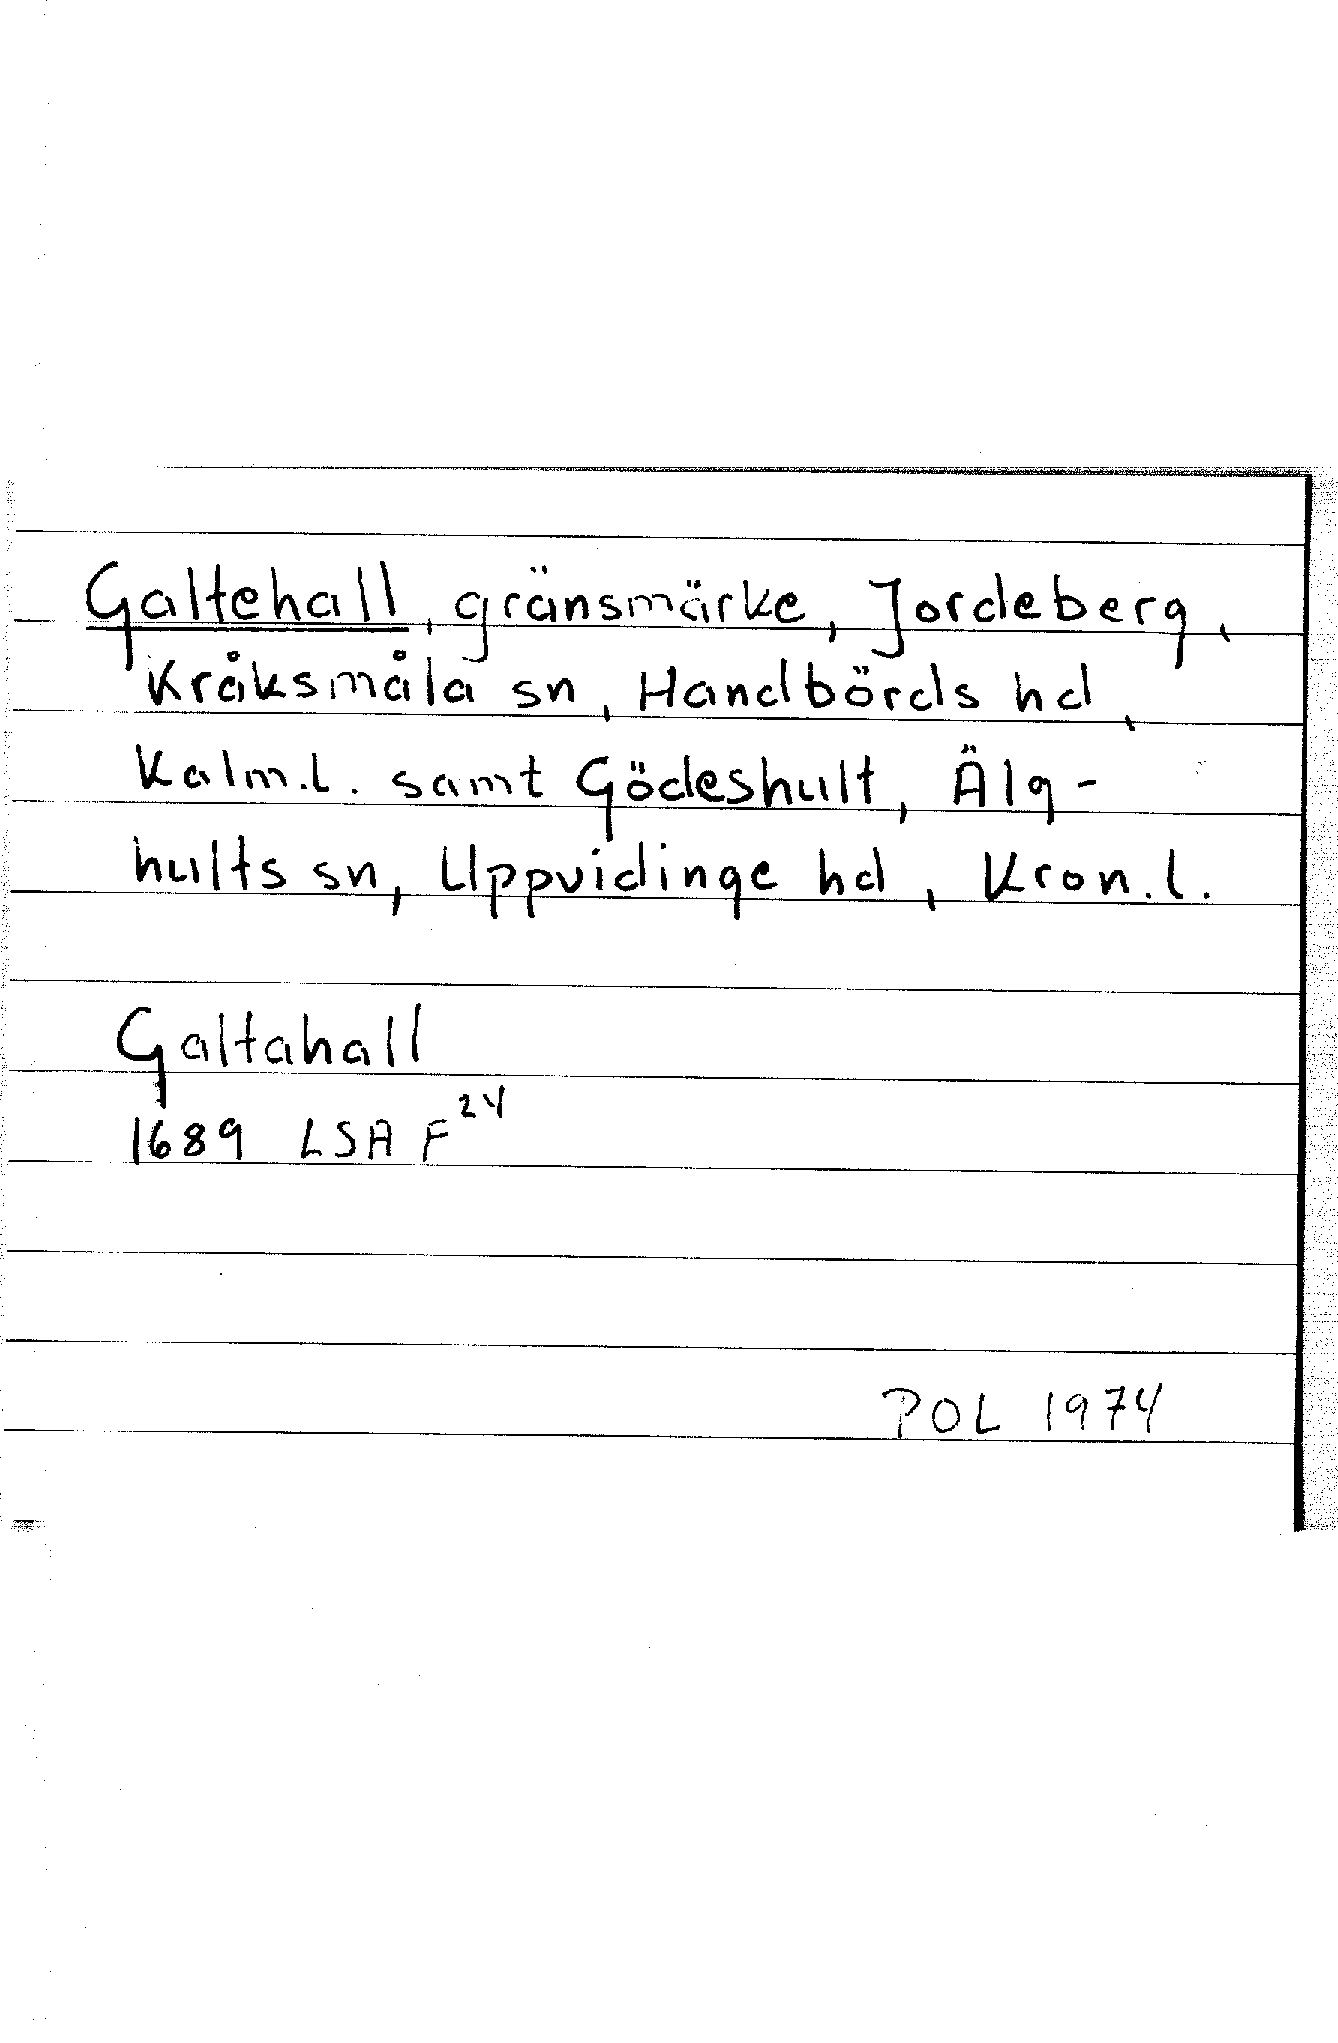 Galtehall, gränsmärke, Jordeberg,
Kråksmåla sn, Handbörds hd,
Kalm.l. samt Gödeshult, Älg-
hults sn, Uppvidinge hd, Kron.l.
Galtahall
1689 LSA F²⁴
POL 1974